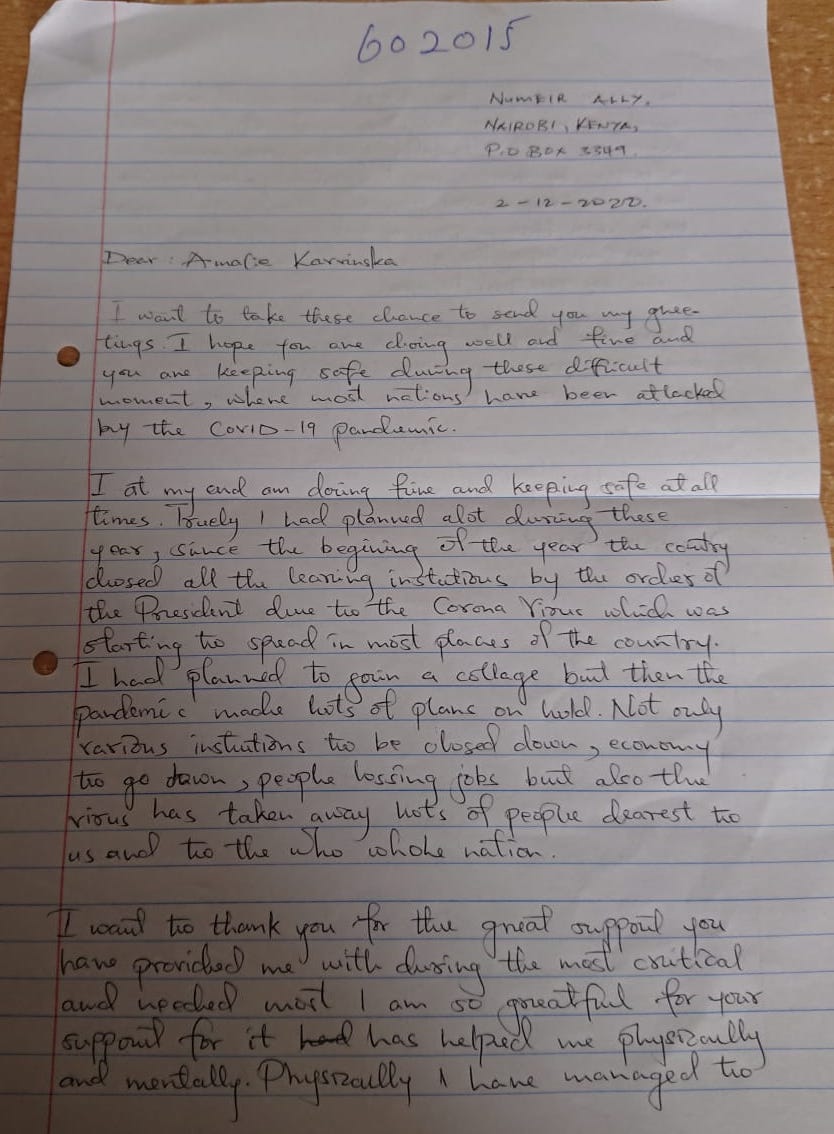 602015
NUMEIR ALLY,
NAIROBI, KENYA,
P.O BOX 3349.
2-12-2020.
Dear: Amalie Karvinska
I want to take these chance to send you my ghee-
tings. I hope you are doing well and fine and
you are keeping safe during these difficult
moment, where most nations have been attacked
by the COVID-19 pandemic.
I at my end am doing fine and keeping safe at all
times. Truely I had planned alot during these
year, since the begining of the year the contry
closed all the learning instutions by the order of
the President due to the Corona Virous which was
starting to spread in most places of the country.
I had planned to join a collage but then the
pandemic made lots of plans on hold. Not only
various instutions to be closed down, economy
to go down, people lossing jobs but also the
virous has taken away lots of people dearest to
us and to the who whole nation.
I want to thank you for the great support you
have provided me with during the most critical
and needed most I am so greatful for your
support for it had has helped me physically
and mentally. Physically I have managed to